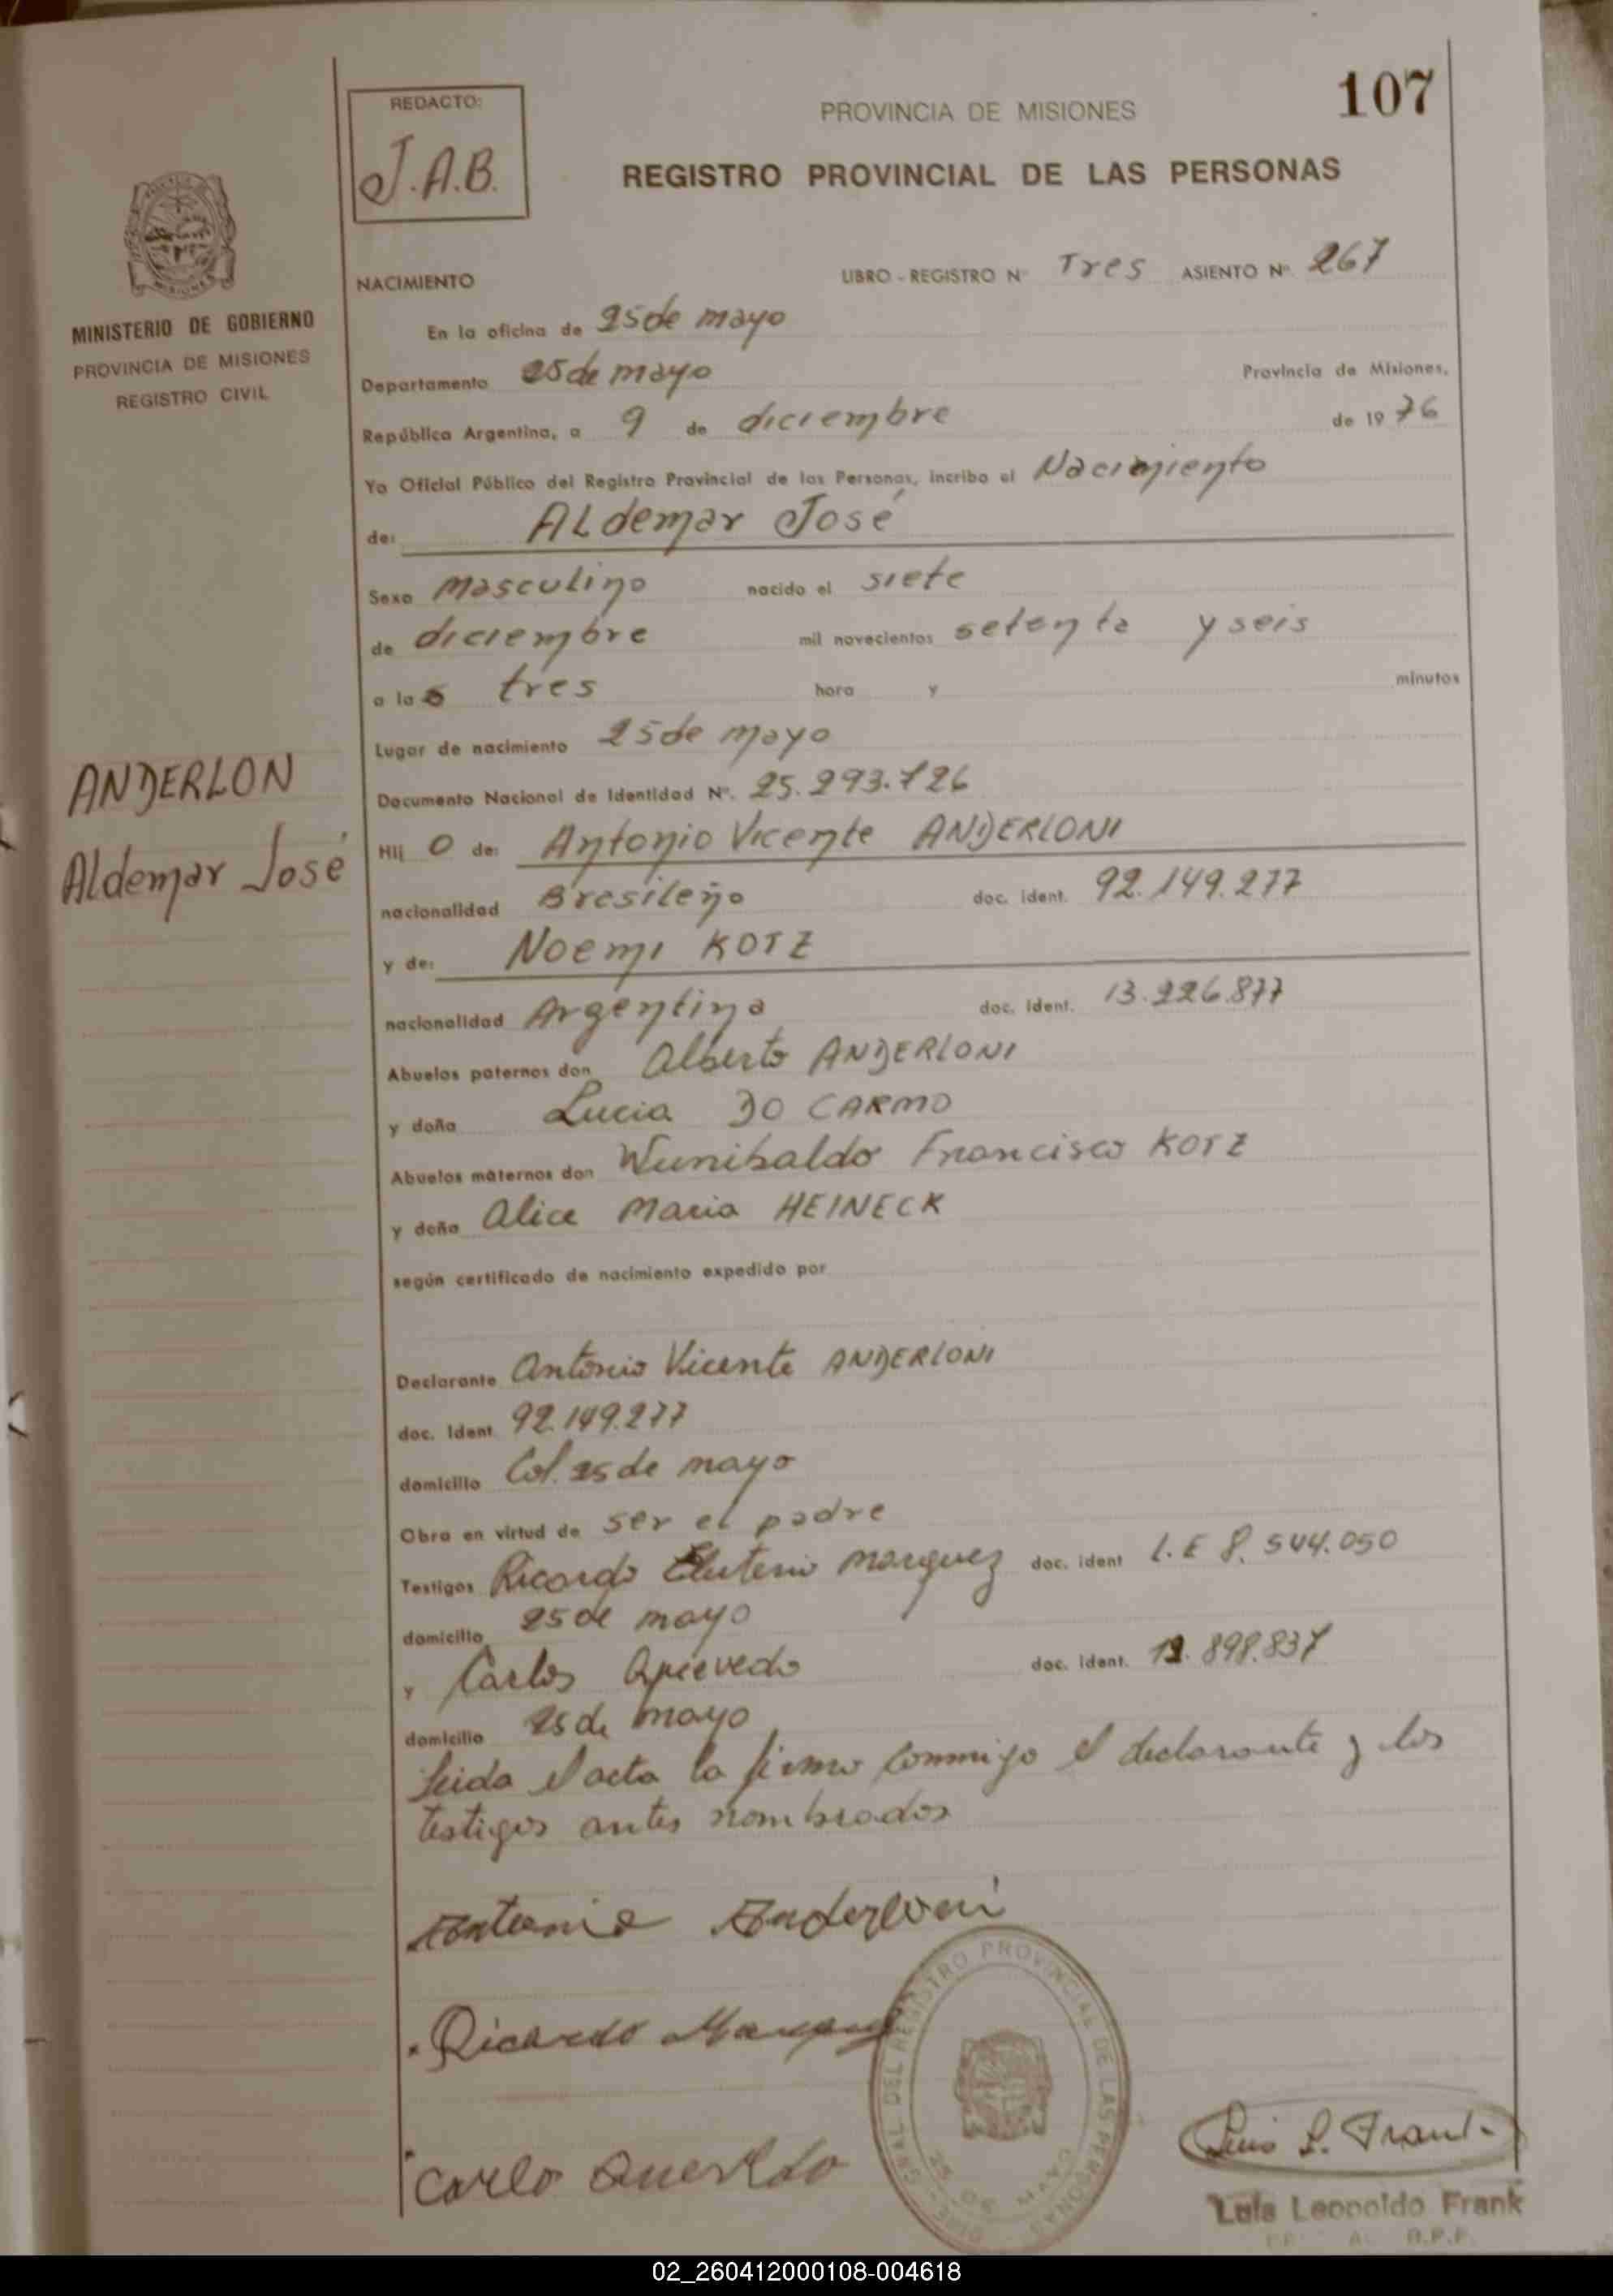 107
REDACTO:
J.A.B.
PROVINCIA DE MISIONES
REGISTRO PROVINCIAL DE LAS PERSONAS
MISIONES
MINISTERIO DE GOBIERNO
PROVINCIA DE MISIONES
REGISTRO CIVIL
NACIMIENTO LIBRO - REGISTRO Nº Tres ASIENTO Nº. 267
En la oficina de 25 de mayo
Departamento 25 de mayo Provincia de Misiones,
República Argentina, a 9 de diciembre de 19 76
Yo Oficial Público del Registro Provincial de las Personas, incribo el Nacimiento
de: ALdemar José
Sexo masculino nacido el siete
de diciembre mil novecientos setenta y seis
a las tres hora y minutos
Lugar de nacimiento 25 de mayo
Documento Nacional de Identidad Nº. 25.293.726
ANDERLON
Aldemar José
Hij o de: Antonio Vicente ANDERLONI
nacionalidad Bresileño doc. ident. 92.149.277
y de: Noemi KOTZ
nacionalidad Argentina doc. ident. 13.226.877
Abuelos paternos don Alberto ANDERLONI
y doña Lucia DO CARMO
Abuelos maternos don Wunibaldo Francisco KOTZ
y doña Alice Maria HEINECK
según certificado de nacimiento expedido por
Declarante Antonio Vicente ANDERLONI
doc. Ident. 92.149.277
domicilio Col. 25 de mayo
Obra en virtud de ser el padre
Testigos Ricardo Eluterio Marquez doc. ident L.E 8.544.050
domicilio 25 de mayo
y Carlos doc. ident. 898.837
domicilio 25 de mayo
Leida el acta la firma conmigo el declarante y los
testigos antes nombrados
Antonio Anderloni
Ricardo
Carlo
REGISTRO PROVINCIAL DE LAS PERSONAS
25 DE MAYO
Luis L. Frank
Luis Leopoldo Frank
R.P.P.
02_260412000108-004618